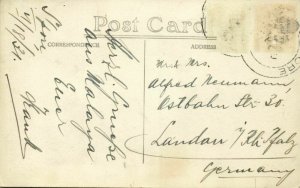 Post Card
CORRESPONDENCE
ADDRESS
Spore
Herzl. Grüsse
aus Malaya
Euer
Frank
Mr & Mrs.
Alfred Neumann
Ostbahn Str.
Landau i/Rh. Pfalz
Germany
ORE